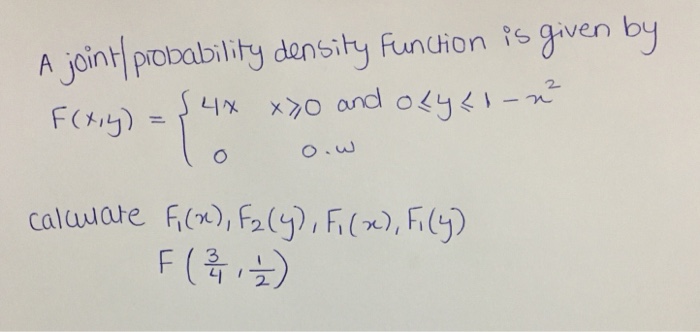 A joint probability density Function is given by
F(x,y) = { 4x x⩾0 and 0⩽y⩽1-x²
0 0.w
calculate F₁(x), F₂(y), F₁(x), F₁(y)
F(3/4, 1/2)